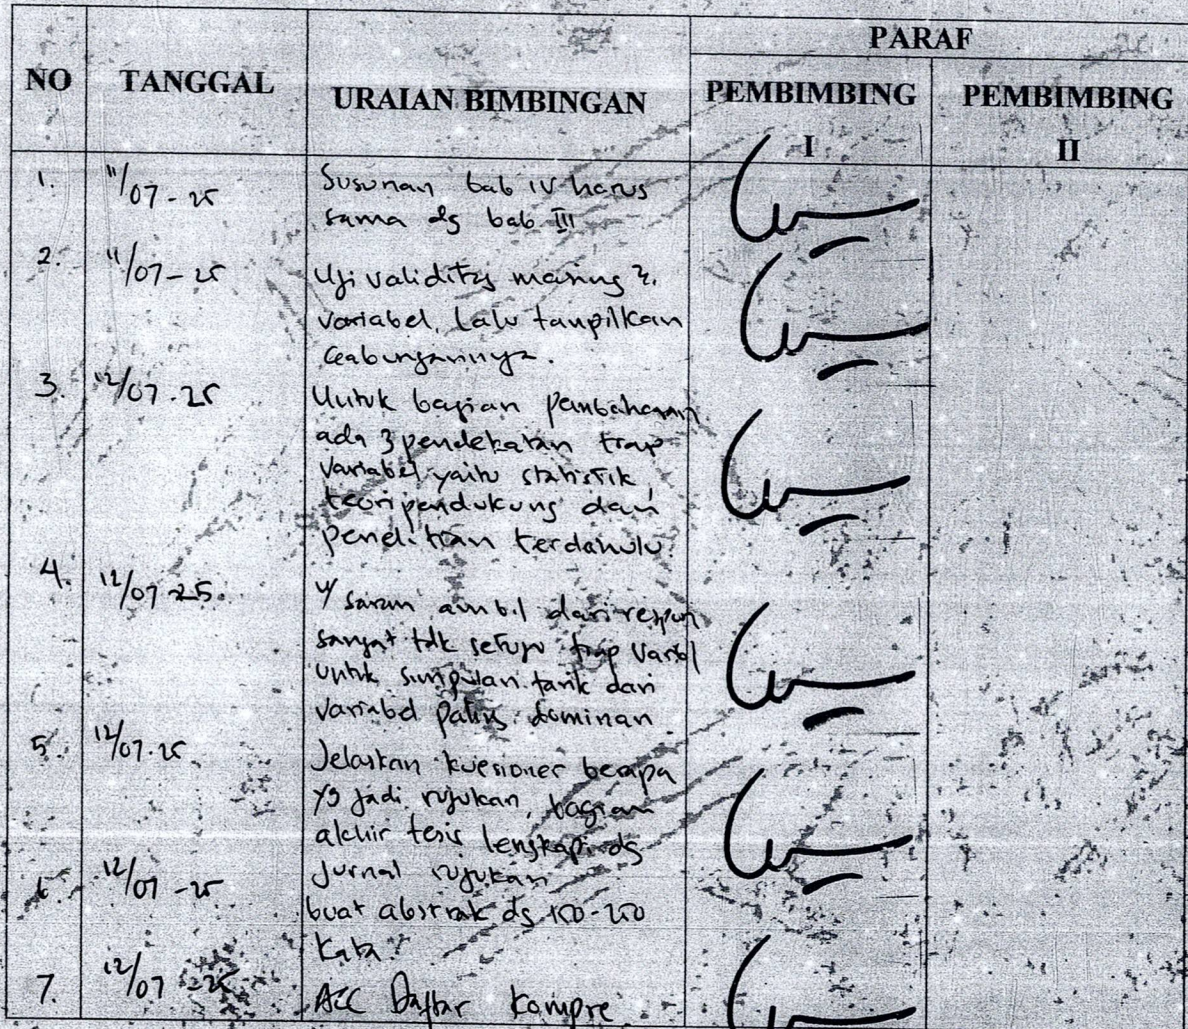 NO TANGGAL URAIAN BIMBINGAN PARAF
PEMBIMBING I PEMBIMBING II
1. 11/07-25 Susunan bab IV harus
sama dg bab III
2. 11/07-25 Uji validitas masing2
variabel, lalu tampilkan
Gabungannya.
3. 12/07-25 Untuk bagian pembahasan
ada 3 pendekatan tiap
variabel yaitu statistik,
teori pendukung dan
penelitian terdahulu.
4. 12/07-25. U/ saran ambil dari respon
sangat tdk setuju tiap variabel
untuk simpulan tarik dari
variabel paling dominan
5. 12/07-25 Jelaskan kuesioner berapa
yg jadi rujukan, bagian
akhir tesis lengkapi dg
Jurnal rujukan
6. 12/07-25 buat abstrak dg 150-250
kata.
7. 12/07-25 ACC Daftar Kompre